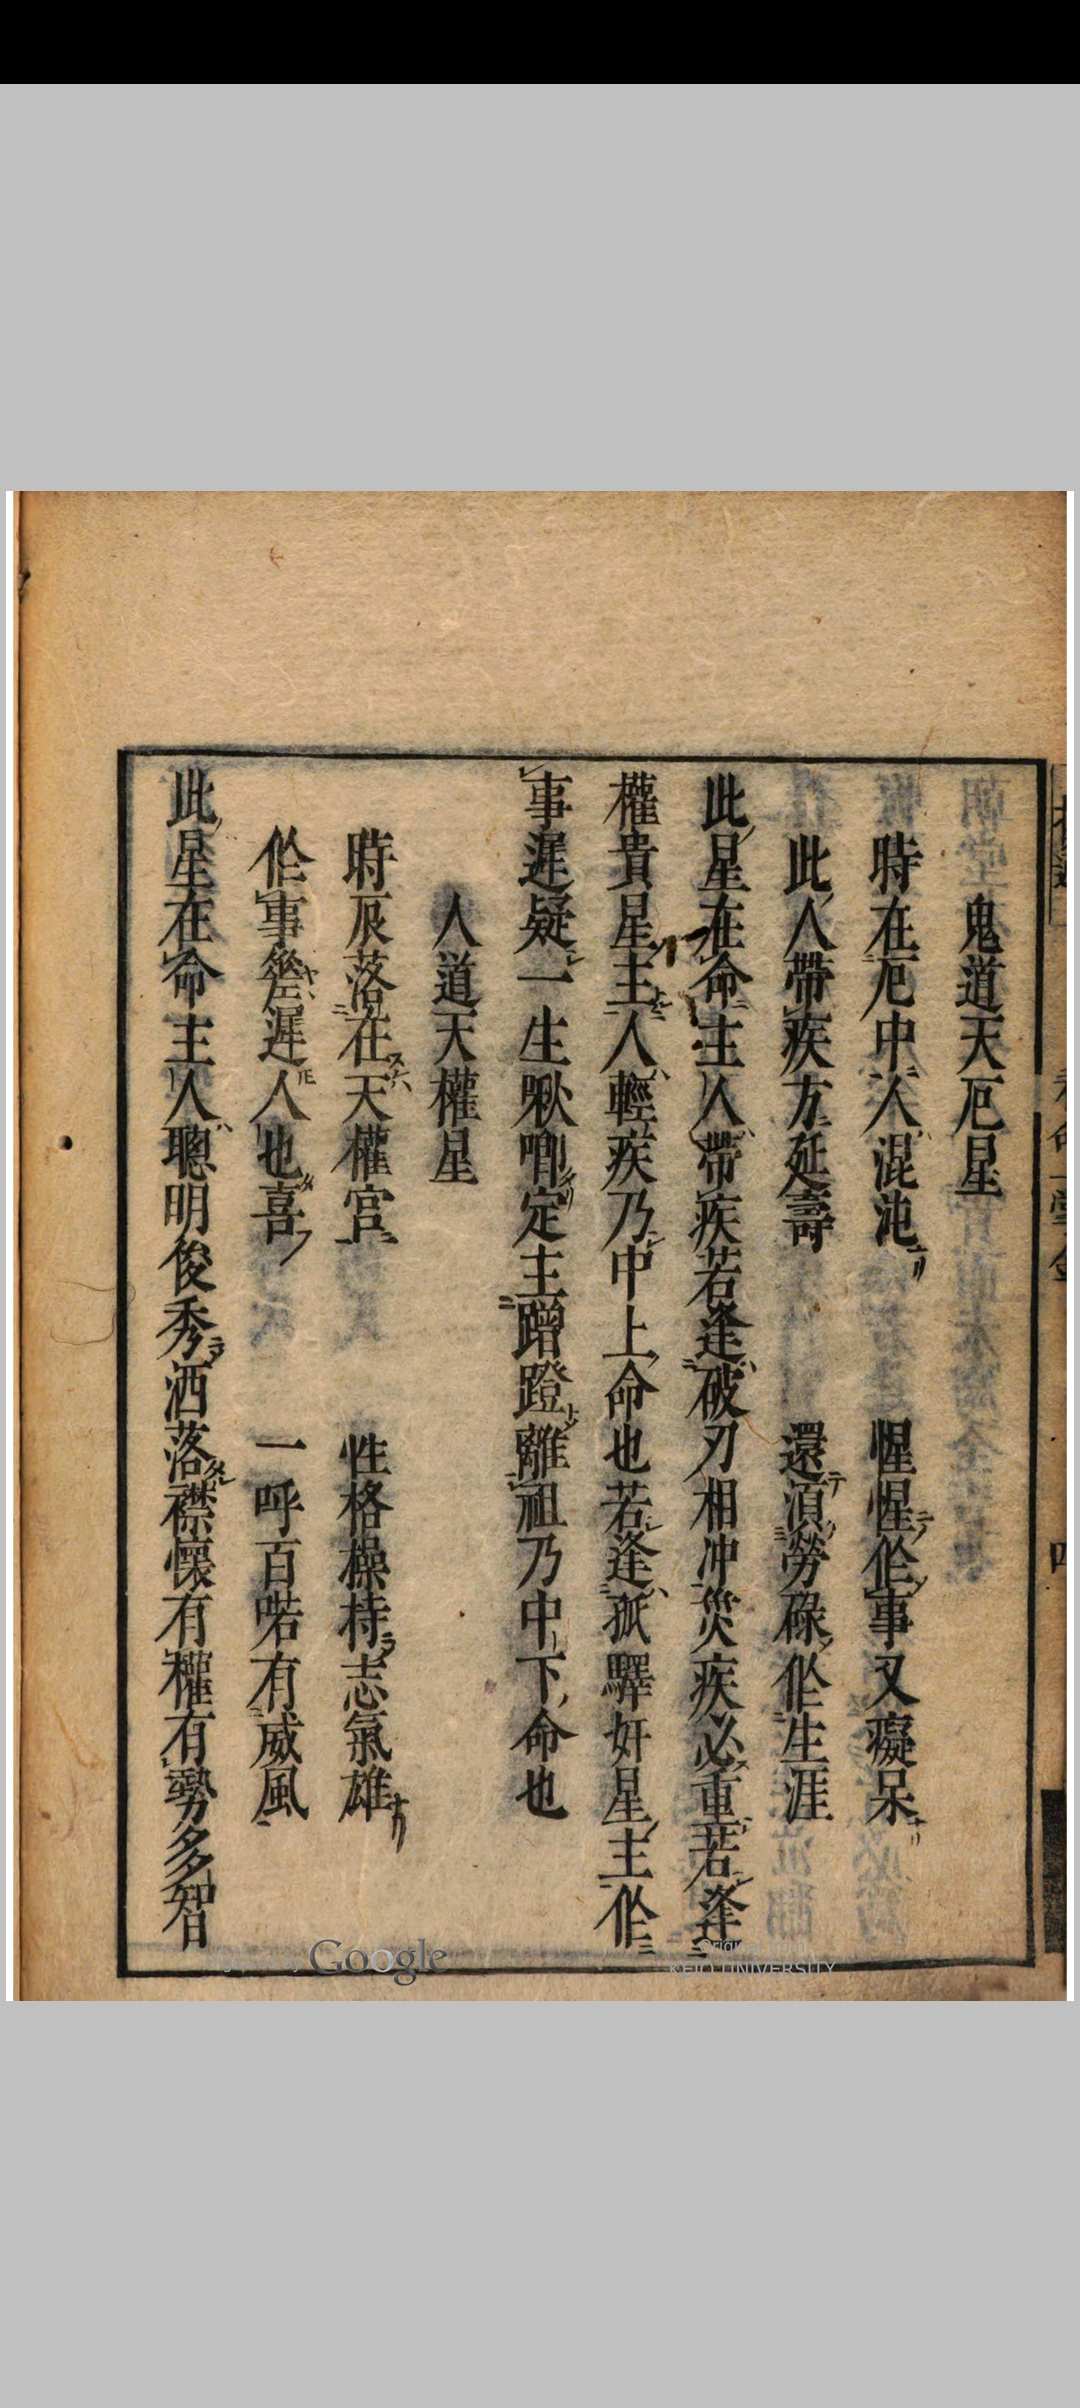 鬼道天厄星
時在厄中人混沌 惺惺作事又癡呆
此人帶疾方延壽 還須勞碌作生涯
此星在命主人帶疾若逢破刃相冲災疾必重若逢
權貴星主人輕疾乃中上命也若逢孤驛奸星主作
事遲疑一生啾唧定主蹭蹬離祖乃中下命也
人道天權星
時辰落在天權官 性格操持志氣雄
作事遲人也喜 一呼百喏有威風
此星在命主人聰明俊秀洒落襟懷有權有勢多智
Google
KEIO UNIVERSITY